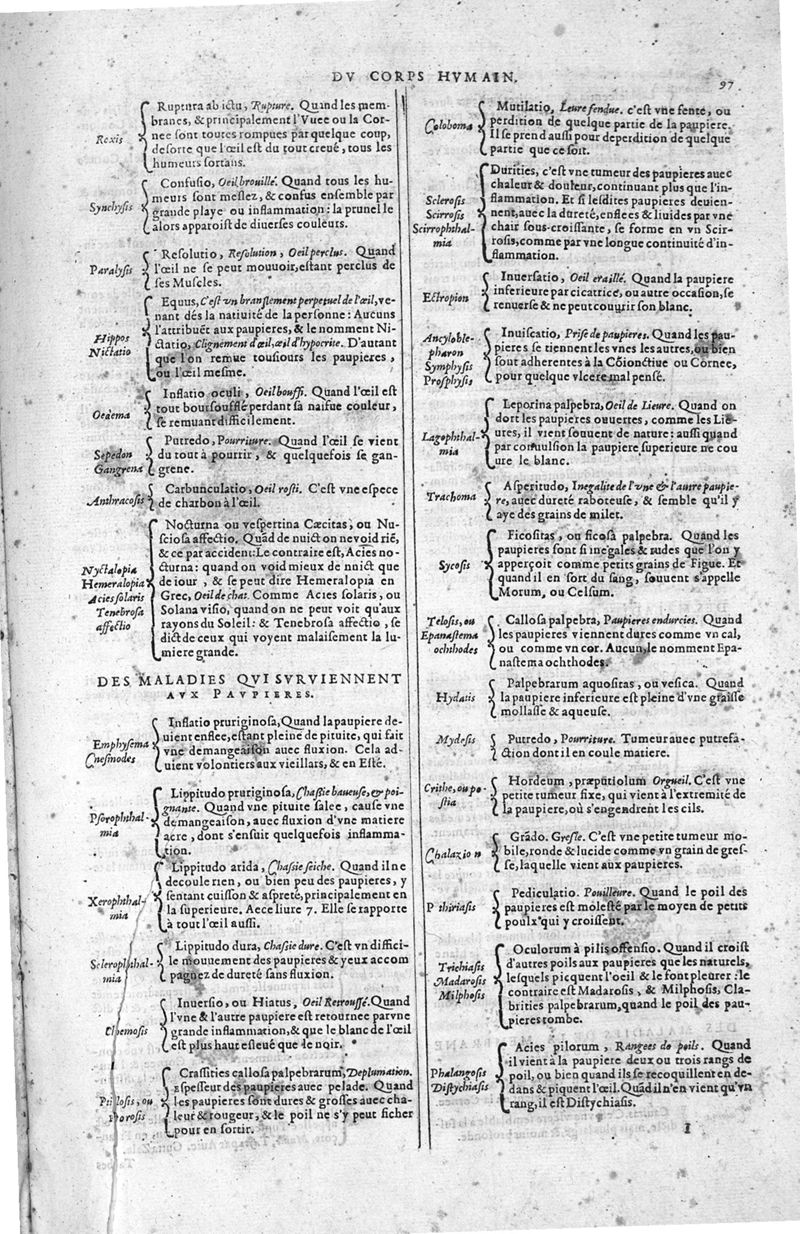 DV CORPS HVMAIN.
97
Rexis
Ruptura ab ictu, Rupture. Quand les mem-
branes, & principalement l'Vuee ou la Cor-
nee sont toutes rompues par quelque coup,
desorte que l'œil est du tout creué, tous les
humeurs sortans.
Synchysis
Confusio, Oeil brouillé. Quand tous les hu-
meurs sont meslez, & confus ensemble par
grande playe ou inflammation: la prunel le
alors apparoist de diuerses couleurs.
Paralysis
Resolutio, Resolution, Oeil perclus. Quand
l'œil ne se peut mouuoir, estant perclus de
ses Muscles.
Hippos
Nictatio
Equus, C'est vn branslement perpetuel de l'œil, ve-
nant dés la natiuité de la personne: Aucuns
l'attribuẽt aux paupieres, & le nomment Ni-
ctatio, Clignement d'œil, œil d'hypocrite. D'autant
que l'on remue tousiours les paupieres,
ou l'œil mesme.
Oedema
Inflatio oculi, Oeil bouffi. Quand l'œil est
tout boursoufflé perdant sa naifue couleur,
se remuant difficilement.
Sepedon
Gangrena
Putredo, Pourriture. Quand l'œil se vient
du tout à pourrir, & quelquefois se gan-
grene.
Anthracosis
Carbunculatio, Oeil rosti. C'est vne espece
de charbon à l'œil.
Nyctalopia
Hemeralopia
Acies solaris
Tenebrosa
affectio
Nocturna ou vespertina Cæcitas, ou Nu-
sciosa affectio. Quãd de nuict on ne void riẽ,
& ce par accident: Le contraire est, Acies no-
cturna: quand on void mieux de nuict que
de iour, & se peut dire Hemeralopia en
Grec, Oeil de chat. Comme Acies solaris, ou
Solana visio, quand on ne peut voir qu'aux
rayons du Soleil: & Tenebrosa affectio, se
dict de ceux qui voyent malaisement la lu-
miere grande.
DES MALADIES QVI SVRVIENNENT
AVX PAVPIERES.
Emphysema
Cnesmodes
Inflatio pruriginosa, Quand la paupiere de-
uient enflee, estant pleine de pituite, qui fait
vne demangeaison auec fluxion. Cela ad-
uient volontiers aux vieillars, & en Esté.
Psorophthal-
mia
Lippitudo pruriginosa, Chassie baueuse, & poi-
gnante. Quand vne pituite salee, cause vne
demangeaison, auec fluxion d'vne matiere
acre, dont s'ensuit quelquefois inflamma-
tion.
Xerophthal-
mia
Lippitudo arida, Chassie seiche. Quand il ne
decoule rien, ou bien peu des paupieres, y
sentant cuisson & aspreté, principalement en
la superieure. Acce liure 7. Elle se rapporte
à tout l'œil aussi.
Sclerophthal-
mia
Lippitudo dura, Chassie dure. C'est vn diffici-
le mouuement des paupieres & yeux accom
pagnez de dureté sans fluxion.
Chemosis
Inuersio, ou Hiatus, Oeil Retroussé. Quand
l'vne & l'autre paupiere est retournee par vne
grande inflammation, & que le blanc de l'œil
est plus haut esleué que le noir.
Ptilosis, ou
Porosis
Crassities callosa palpebrarum, Deplumation.
Espesseur des paupieres auec pelade. Quand
les paupieres sont dures & grosses auec cha-
leur & rougeur, & le poil ne s'y peut ficher
pour en sortir.
Coloboma
Mutilatio, Leure fendue. c'est vne fente, ou
perdition de quelque partie de la paupiere.
Il se prend aussi pour deperdition de quelque
partie que ce soit.
Sclerosis
Scirrosis
Scirrophthal-
mia
Durities, c'est vne tumeur des paupieres auec
chaleur & douleur, continuant plus que l'in-
flammation. Et si lesdites paupieres deuien-
nent, auec la dureté, enflees & liuides par vne
chair sous-croissante, se forme en vn Scir-
rosis, comme par vne longue continuité d'in-
flammation.
Ectropion
Inuersatio, Oeil eraillé. Quand la paupiere
inferieure par cicatrice, ou autre occasion, se
renuerse & ne peut couurir son blanc.
Ancyloble-
pharon
Symphysis
Prosphysis
Inuiscatio, Prise de paupieres. Quand les pau-
pieres se tiennent les vnes les autres, ou bien
sont adherentes à la Cõionctiue ou Cornee,
pour quelque vlcere mal pensé.
Lagophthal-
mia
Leporina palpebra, Oeil de Lieure. Quand on
dort les paupieres ouuertes, comme les Lie-
ures, il vient souuent de nature: aussi quand
par conuulsion la paupiere superieure ne cou
ure le blanc.
Trachoma
Asperitudo, Inegalité de l'vne & l'autre paupie-
re, auec dureté raboteuse, & semble qu'il y
aye des grains de milet.
Sycosis
Ficositas, ou ficosa palpebra. Quand les
paupieres sont si inegales & rudes que l'on y
apperçoit comme petits grains de Figue. Et
quand il en sort du sang, souuent s'appelle
Morum, ou Celsum.
Telosis, ou
Epanastema
ochthodes
Callosa palpebra, Paupieres endurcies. Quand
les paupieres viennent dures comme vn cal,
ou comme vn cor. Aucun, le nomment Epa-
nastema ochthodes.
Hydatis
Palpebrarum aquositas, ou vesica. Quand
la paupiere inferieure est pleine d'vne graisse
mollasse & aqueuse.
Mydesis
Putredo, Pourriture. Tumeur auec putrefa-
ction dont il en coule matiere.
Crithe, ou po-
stia
Hordeum, præputiolum Orgueil. C'est vne
petite tumeur fixe, qui vient à l'extremité de
la paupiere, où s'engendrent les cils.
Chalazion
Grãdo. Gresle. C'est vne petite tumeur mo-
bile, ronde & lucide comme vn grain de gres-
se, laquelle vient aux paupieres.
Pthiriasis
Pediculatio. Pouilleure. Quand le poil des
paupieres est molesté par le moyen de petits
poulx qui y croissent.
Trichiasis
Madarosis
Milphosis
Oculorum à pilis offensio. Quand il croist
d'autres poils aux paupieres que les naturels,
lesquels picquent l'oeil & le font pleurer: le
contraire est Madarosis, & Milphosis, Cla-
britias palpebrarum, quand le poil des pau-
pieres tombe.
Phalangosis
Distychiasis
Acies pilorum, Rangees de poils. Quand
il vient à la paupiere deux ou trois rangs de
poil, ou bien quand ils se recoquillent en de-
dans & piquent l'œil. Quãd il n'en vient qu'vn
rang, il est Distychiasis.
I